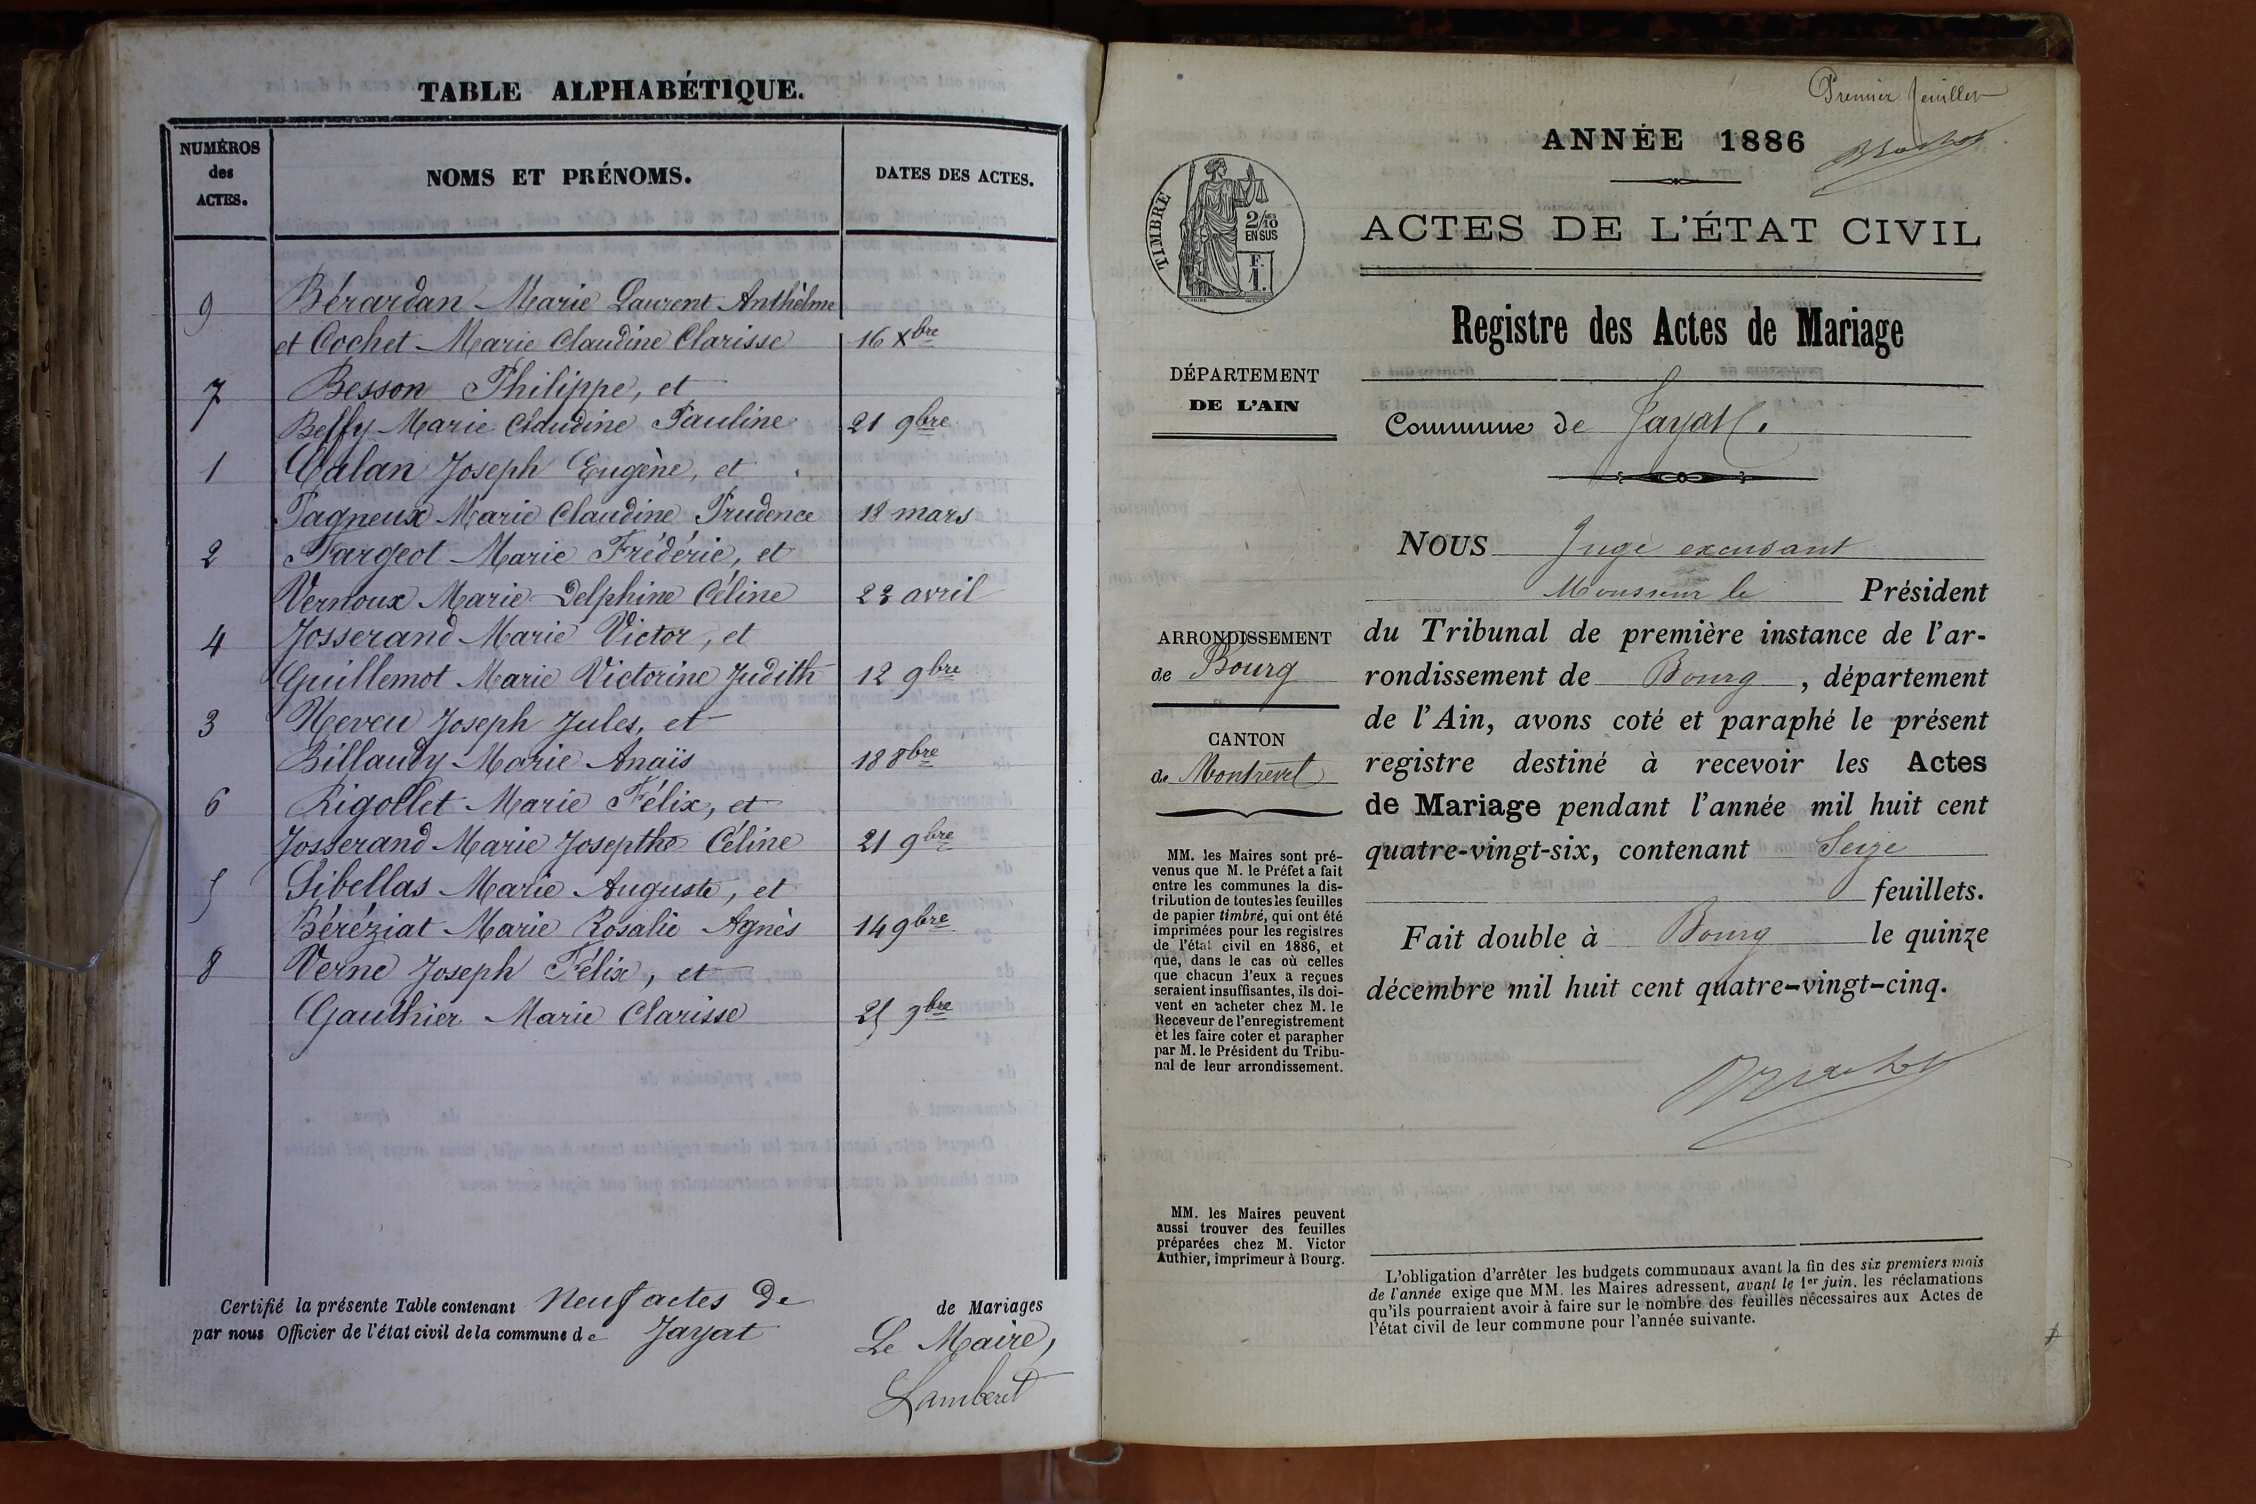 TABLE ALPHABÉTIQUE.
NUMÉROS
des
ACTES.
NOMS ET PRÉNOMS.
DATES DES ACTES.
9 Bérardan Marie Laurent Anthèlme
et Cochet Marie Claudine Clarisse 16 Xbre
7 Besson Philippe, et
Beffy Marie Claudine Pauline 21 9bre
1 Calan Joseph Eugène, et
Pagneux Marie Claudine Prudence 18 mars
2 Fargeot Marie Frédéric, et
Vernoux Marie Delphine Céline 23 avril
4 Josserand Marie Victor, et
Guillemot Marie Victorine Judith 12 9bre
3 Neveu Joseph Jules, et
Billaudy Marie Anaïs 18 8bre
6 Rigollet Marie Félix, et
Josserand Marie Josephe Céline 21 9bre
5 Sibellas Marie Auguste, et
Béréziat Marie Rosalie Agnès 14 9bre
8 Verne Joseph Félix, et
Gauthier Marie Clarisse 25 9bre
Certifié la présente Table contenant Neuf actes de de Mariages
par nous Officier de l'état civil de la commune de Jayat
Le Maire,
Lamberet
Premier feuillet
ANNÉE 1886
TIMBRE
2/10
EN SUS
F.
1.
ACTES DE L'ÉTAT CIVIL
Registre des Actes de Mariage
DÉPARTEMENT
DE L'AIN
Commune de Jayat.
NOUS Juge excusant
Monsieur le Président
du Tribunal de première instance de l'ar-
rondissement de Bourg, département
de l'Ain, avons coté et paraphé le présent
registre destiné à recevoir les Actes
de Mariage pendant l'année mil huit cent
quatre-vingt-six, contenant Seize
feuillets.
Fait double à Bourg le quinze
décembre mil huit cent quatre-vingt-cinq.
ARRONDISSEMENT
de Bourg
CANTON
de Montrevel
MM. les Maires sont pré-
venus que M. le Préfet a fait
entre les communes la dis-
tribution de toutes les feuilles
de papier timbré, qui ont été
imprimées pour les registres
de l'état civil en 1886, et
que, dans le cas où celles
que chacun d'eux a reçues
seraient insuffisantes, ils doi-
vent en acheter chez M. le
Receveur de l'enregistrement
et les faire coter et parapher
par M. le Président du Tribu-
nal de leur arrondissement.
MM. les Maires peuvent
aussi trouver des feuilles
préparées chez M. Victor
Authier, imprimeur à Bourg.
L'obligation d'arrêter les budgets communaux avant la fin des six premiers mois
de l'année exige que MM. les Maires adressent, avant le 1er juin, les réclamations
qu'ils pourraient avoir à faire sur le nombre des feuilles nécessaires aux Actes de
l'état civil de leur commune pour l'année suivante.